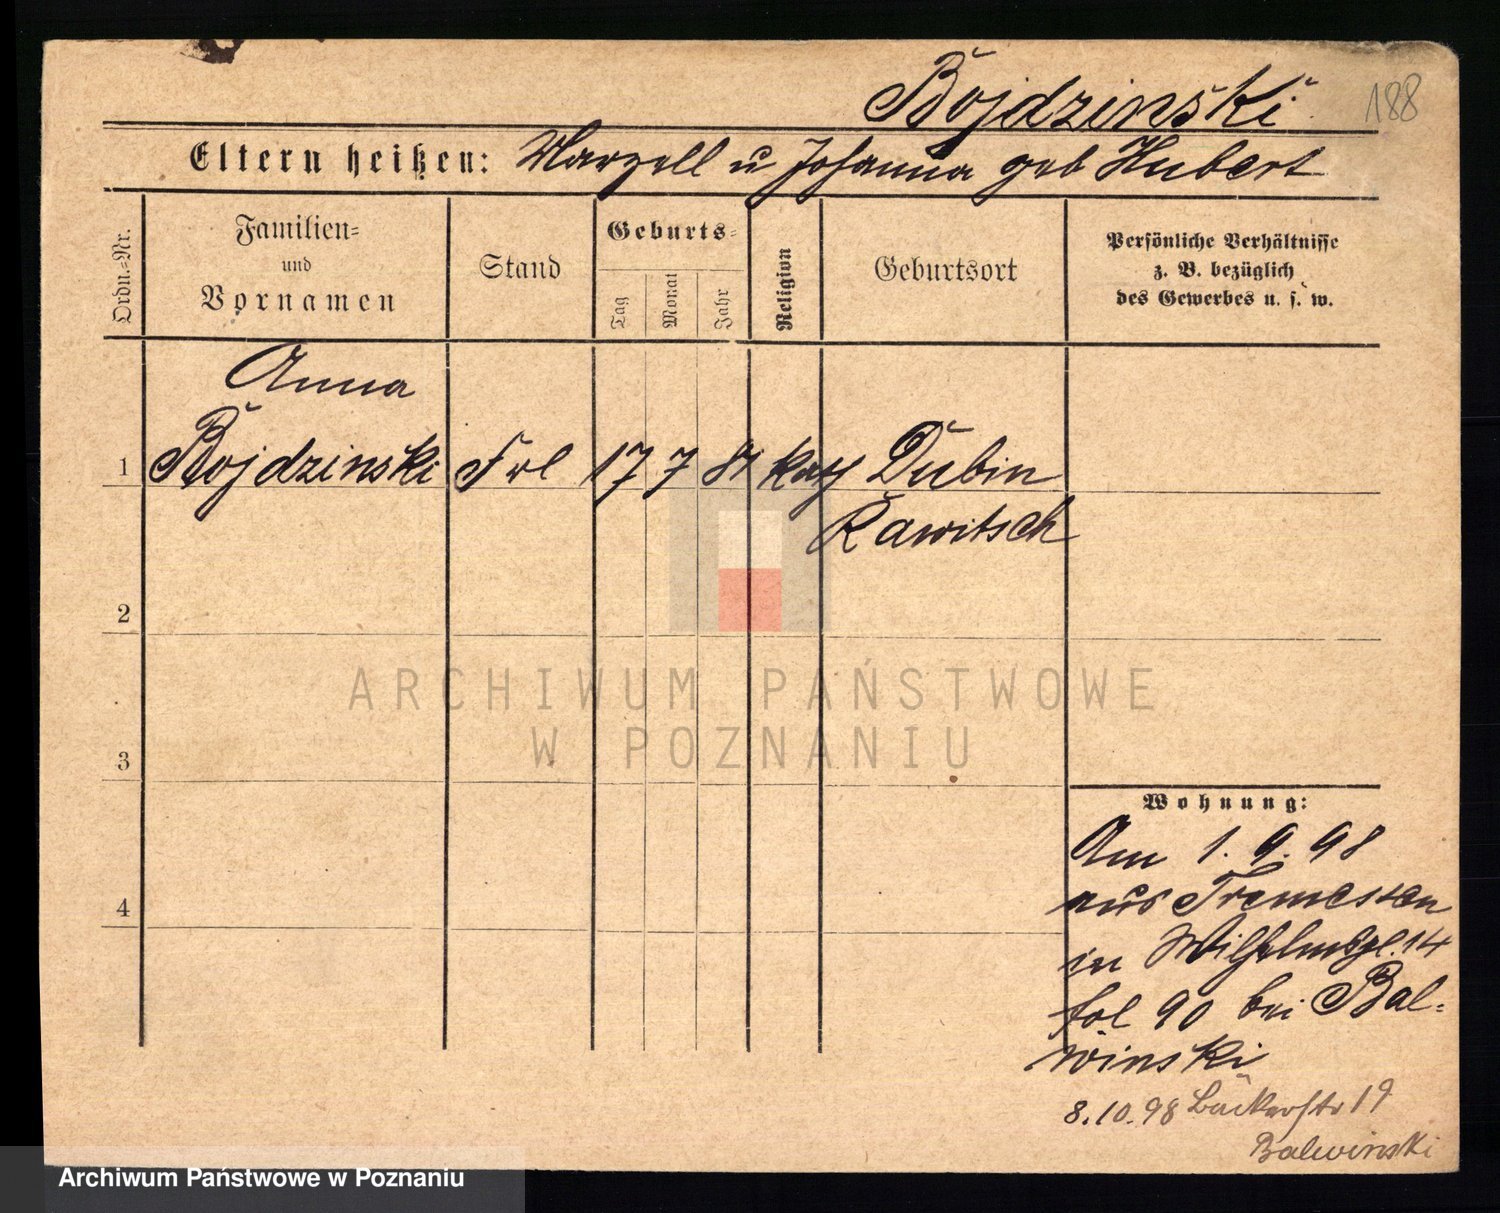 Bojdzinski
188
Eltern heißen: Marzell u Johanna geb Hubert
Ordn.-Nr.
Familien-
und
Vornamen
Stand
Geburts-
Tag
Monat
Jahr
Religion
Geburtsort
Persönliche Verhältnisse
z. B. bezüglich
des Gewerbes u. s. w.
Anna
1 Bojdzinski Frl 17 7 81 kath Dubin
Rawitsch
2
ARCHIWUM PAŃSTWOWE
W POZNANIU
3
Wohnung:
Am 1. 9. 98
aus Tremessen
4
in Wilhelmspl. 14
fol 90 bei Bal-
winski
8.10.98 Bäckerstr 19
Balwinski
Archiwum Państwowe w Poznaniu